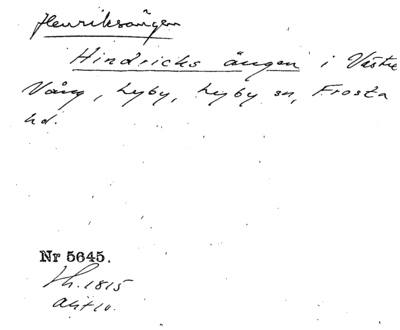 Henriksängen
Hindricks ängen i Västre
Vång, Lyby, Lyby sn, Frosta
hd.
Nr 5645.
1815